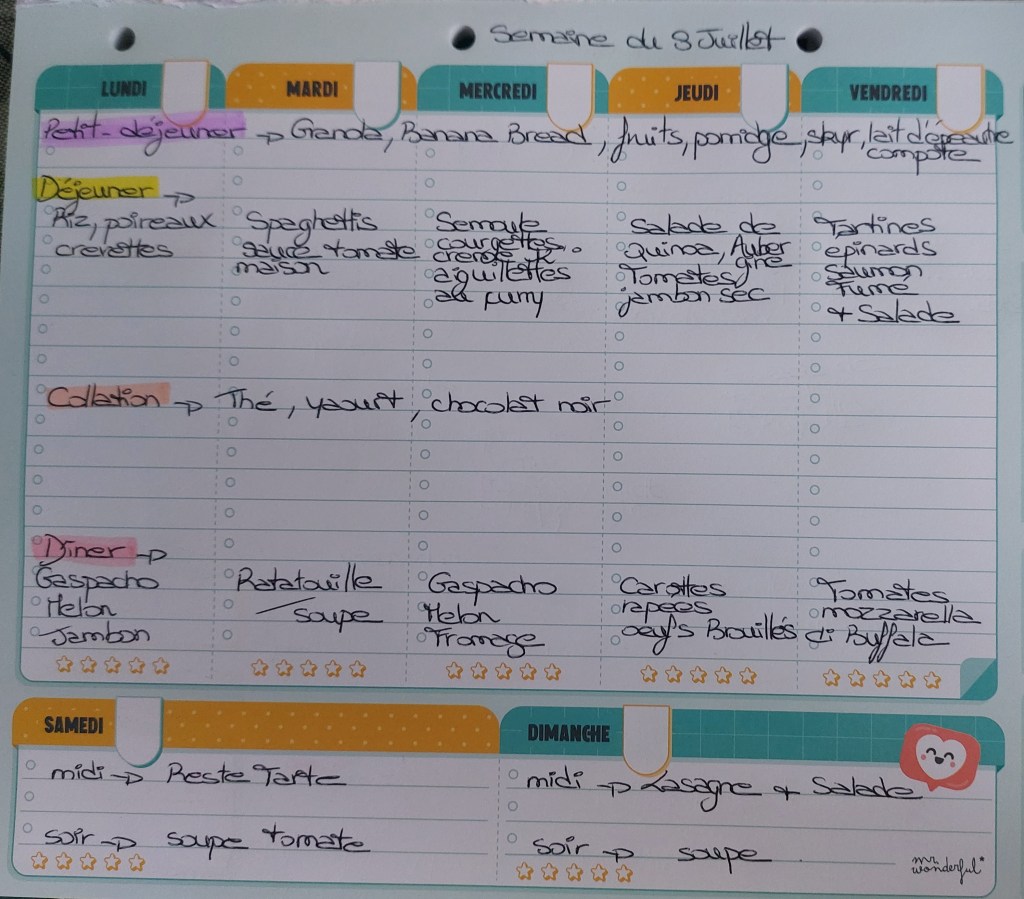 Semaine du 8 Juillet
LUNDI MARDI MERCREDI JEUDI VENDREDI
Petit-déjeuner → Granola, Banana Bread, fruits, porridge, skyr, lait d'épeautre
compote
Déjeuner →
Riz, poireaux
crevettes
Spaghettis
sauce tomate
maison
Semoule
courgettes
aiguillettes
au curry
Salade de
quinoa, Auber
gine
Tomates,
jambon sec
Tartines
epinards
saumon
Fumé
+ Salade
Collation → Thé, yaourt, chocolat noir
Diner →
Gaspacho
Melon
Jambon
Ratatouille
/soupe
Gaspacho
Melon
Fromage
Carottes
rapees
oeufs Brouillés
Tomates
mozzarella
di Buffala
SAMEDI
midi → Reste Tarte
soir → soupe tomate
DIMANCHE
midi → Lasagne + Salade
soir → soupe
mr.
wonderful*